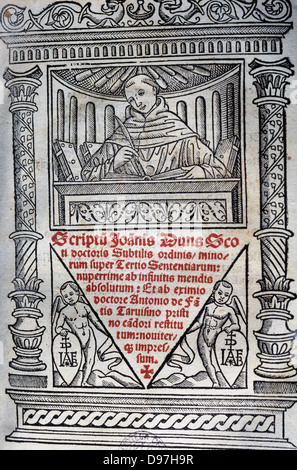 Scriptũ Joãnis Duns Sco
ti doctoris Subtilis ordinis mino⸗
rum super Tertio Sententiarum:
nuperrime ab infinitis mendis
absolutum: Et ab eximio
doctore Antonio de Fã
tis Taruisino pristi
no cãdori restitu
tum: nouiter,
impres⸗
sum.
alamy